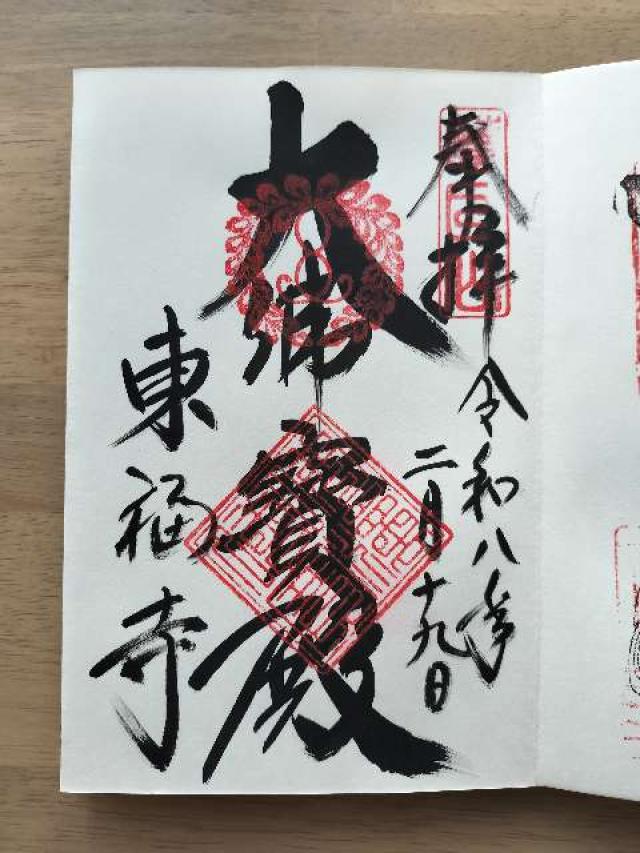 奉拝
令和八年
二月十九日
大佛寳殿
東福寺